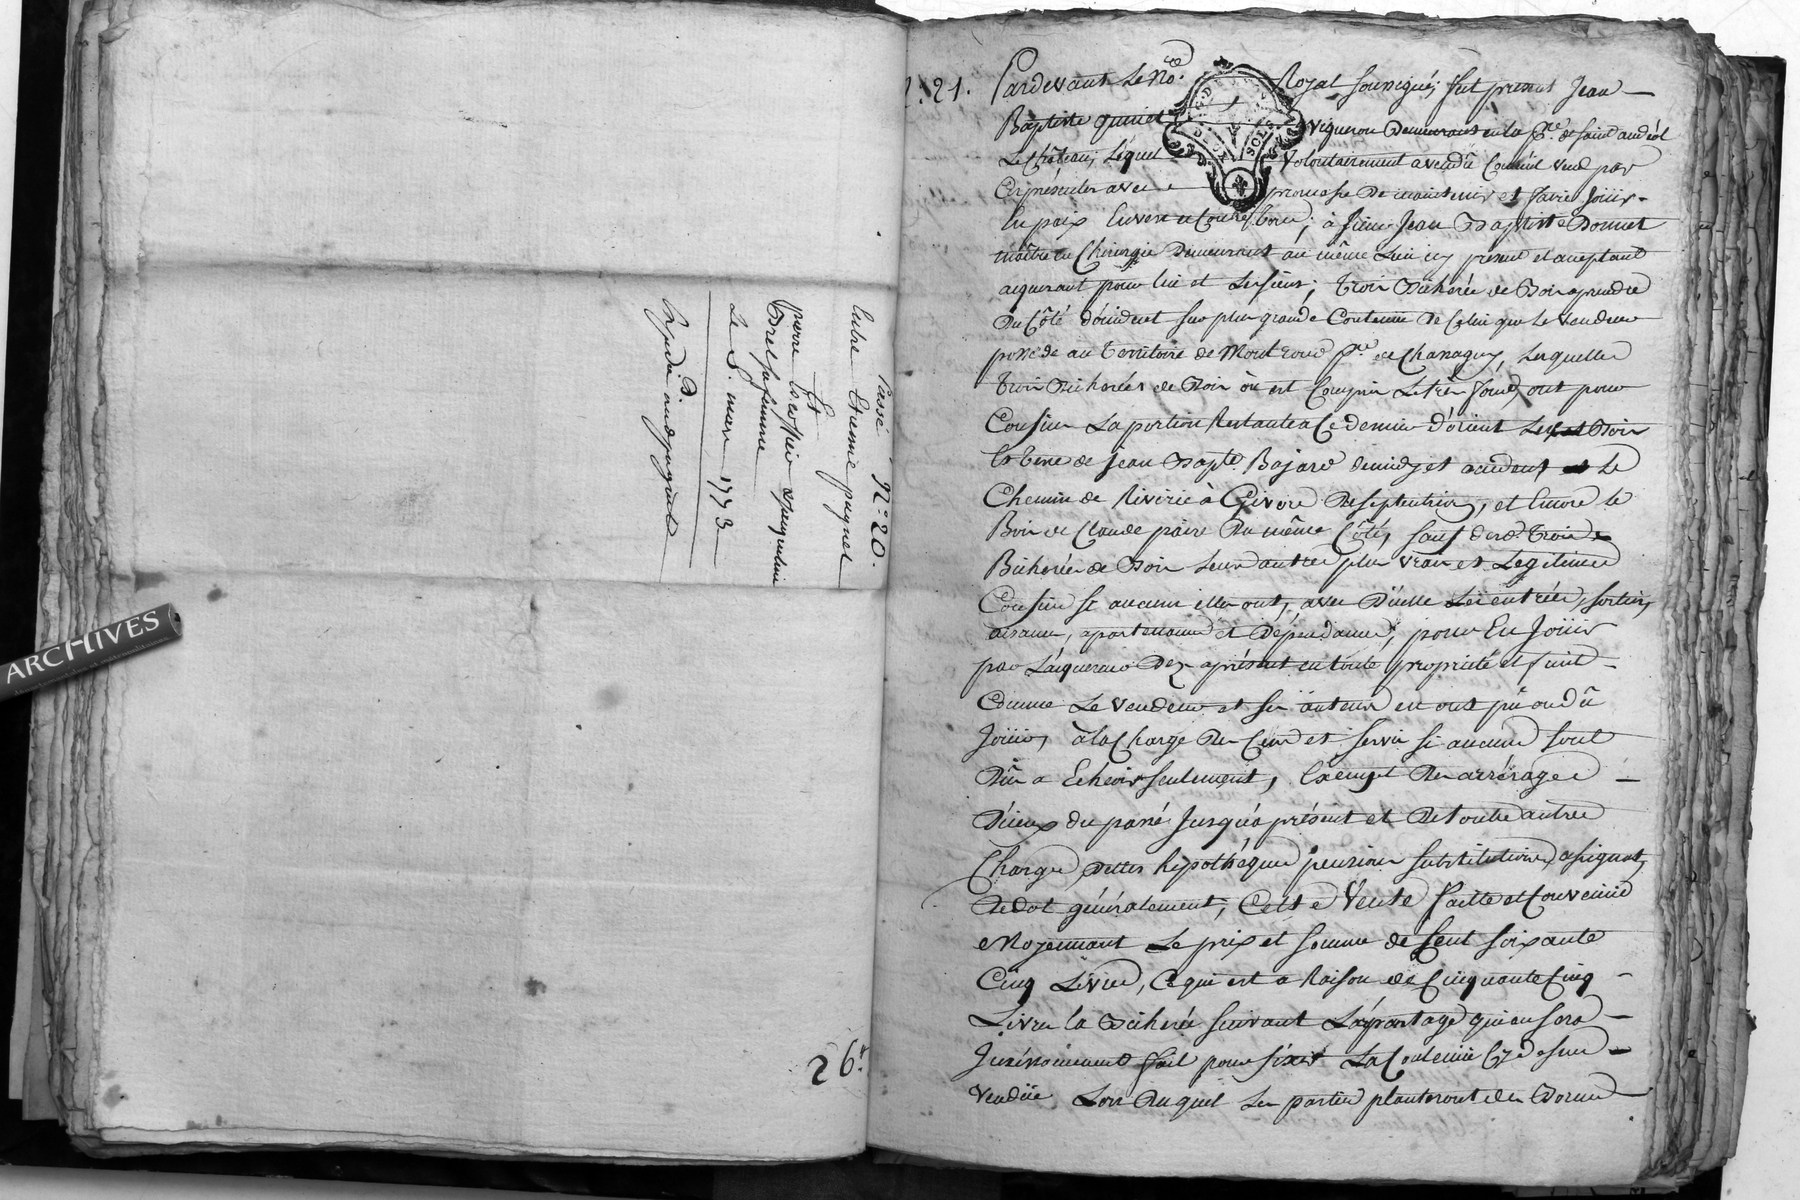 Passé N.° 20.
Entre Etienne paquet
Et
pierre
Brel sa femme
Le 8. mars 1773
Expedié aud paquet
26.e
ARCHIVES
2. 21. Pardevant Le No.re Royal soussigné; fut present Jean
Baptiste quinet vigneron Demeurant en la p.sse de saint andéol
Le château; Lequel volontairement a vendû Comme il vend par
Ces présentes avec promesse De maintenir et faire Joüir
En paix Envers et Contre tous; à sieur Jean Baptiste Bonnet
maitre en Chirurgie Demeurant au même Lieu icy present et acceptant
acquerant pour lui et Les siens; trois Bicherées de Bois aprendre
Du Côté d'occident sur plus grande Contenue De Celui que Le Vendeur
possede au territoire de Montrond p.sse de Chassagny, Lesquelles
trois Bicherées de Bois où est Compris Le très fond, ont pour
Confins La portion Restante a Ce dernier d'orient Les Bois
Et terre de Jean Bapte. Bajard de midy et occident, Le
Chemin de Riverie à Givors De septentrion, et Encore le
Bois de Claude paire Du même Côté, sauf desd. trois
Bicherées de Bois Leurs autres plus vrais et Legitimes
Confins si aucuns elles ont, avec D'icelle Les entrées, sorties,
aisances, apartenances et Dépendances; pour En Joüir
par L'acquereur Dez aprésent en toute propriété et fruit
Comme Le Vendeur et ses auteurs en ont pû ou dû
Joüir, à la Charge Des Cens et servis si aucuns sont
Dûs a Echeoir seulement, Exempt Des arrérages
D'iceux du passé Jusqu'à présent et De toutes autres
Charges, dettes hypothéques pensions substitutions, assignat,
De dot généralement; Cette Vente faitte et Convenüe
Moyennant Le prix et somme de Cent soixante
Cinq Livres, Ce qui est a Raison de Cinquante Cinq
Livres la Bicherée suivant L'apartage qui en sera
fait pour fixer La Contenüe Cy dessus
Vendüe Lors Duquel Les parties planteront des Bornes